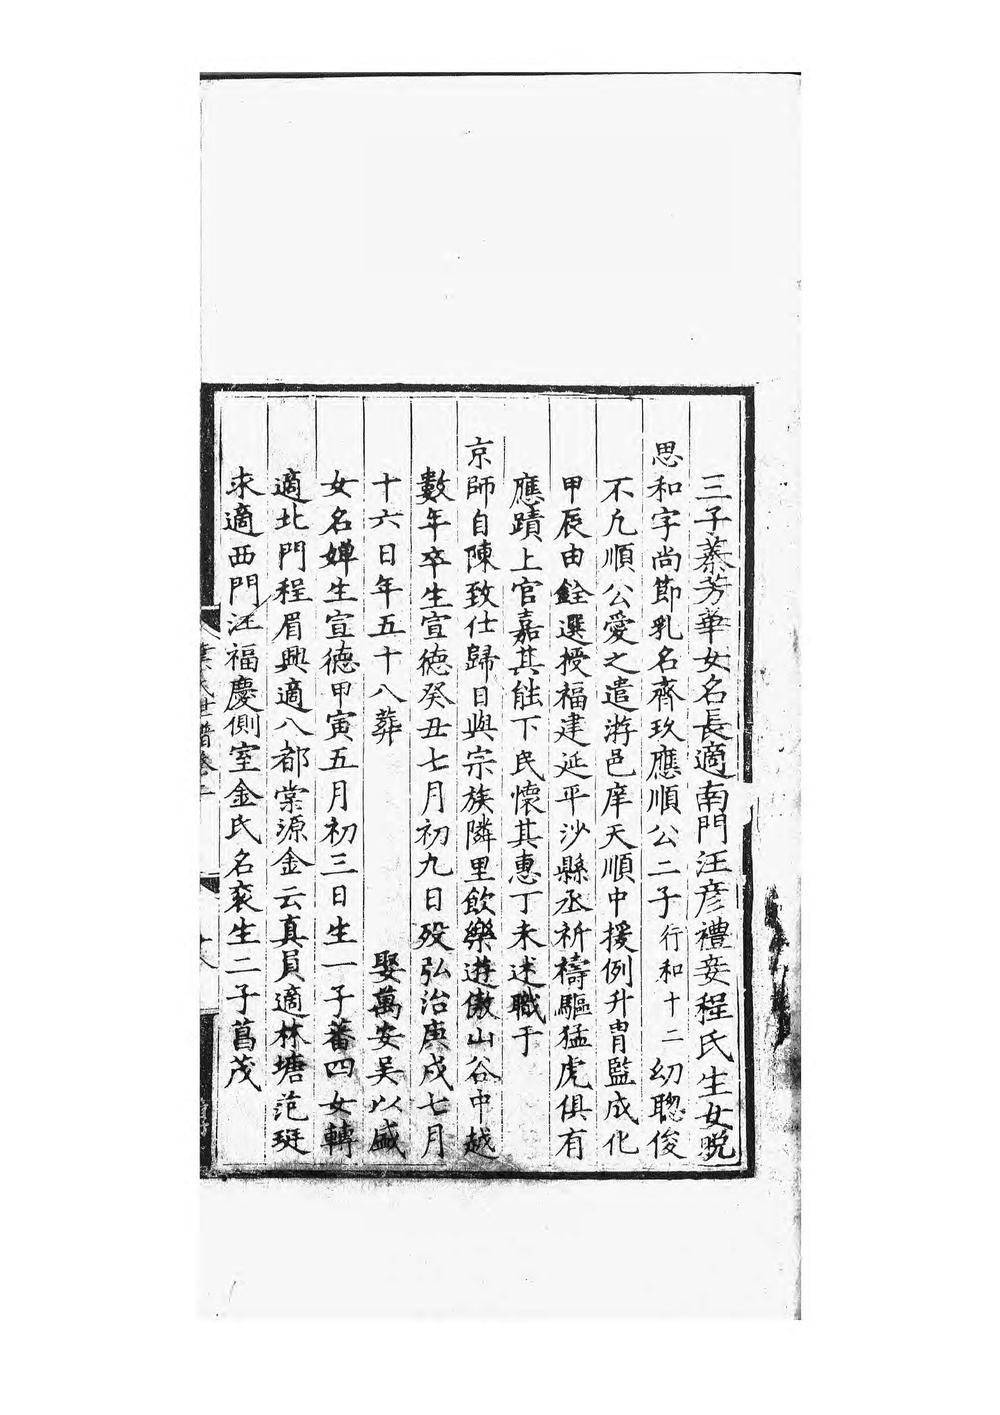 三子蓁芳華女名長適南門汪彦禮妾程氏生女晩
思和字尚節乳名齊玖應順公二子行和十二幼聰俊
不凡順公愛之遣游邑庠天順中援例升胄監成化
甲辰由銓選授福建延平沙縣丞祈禱驅猛虎俱有
應蹟上官嘉其能下民懷其惠丁未述職于
京師自陳致仕歸日與宗族隣里飲樂遊傲山谷中越
數年卒生宣德癸丑七月初九日歿弘治庚戌七月
十六日年五十八葬　娶萬安吴以盛
女名嬋生宣德甲寅五月初三日生一子蕃四女轉
適北門程眉興適八都棠源金云真員適林塘范珽
求適西門汪福慶側室金氏名衮生二子菖茂
世譜卷二